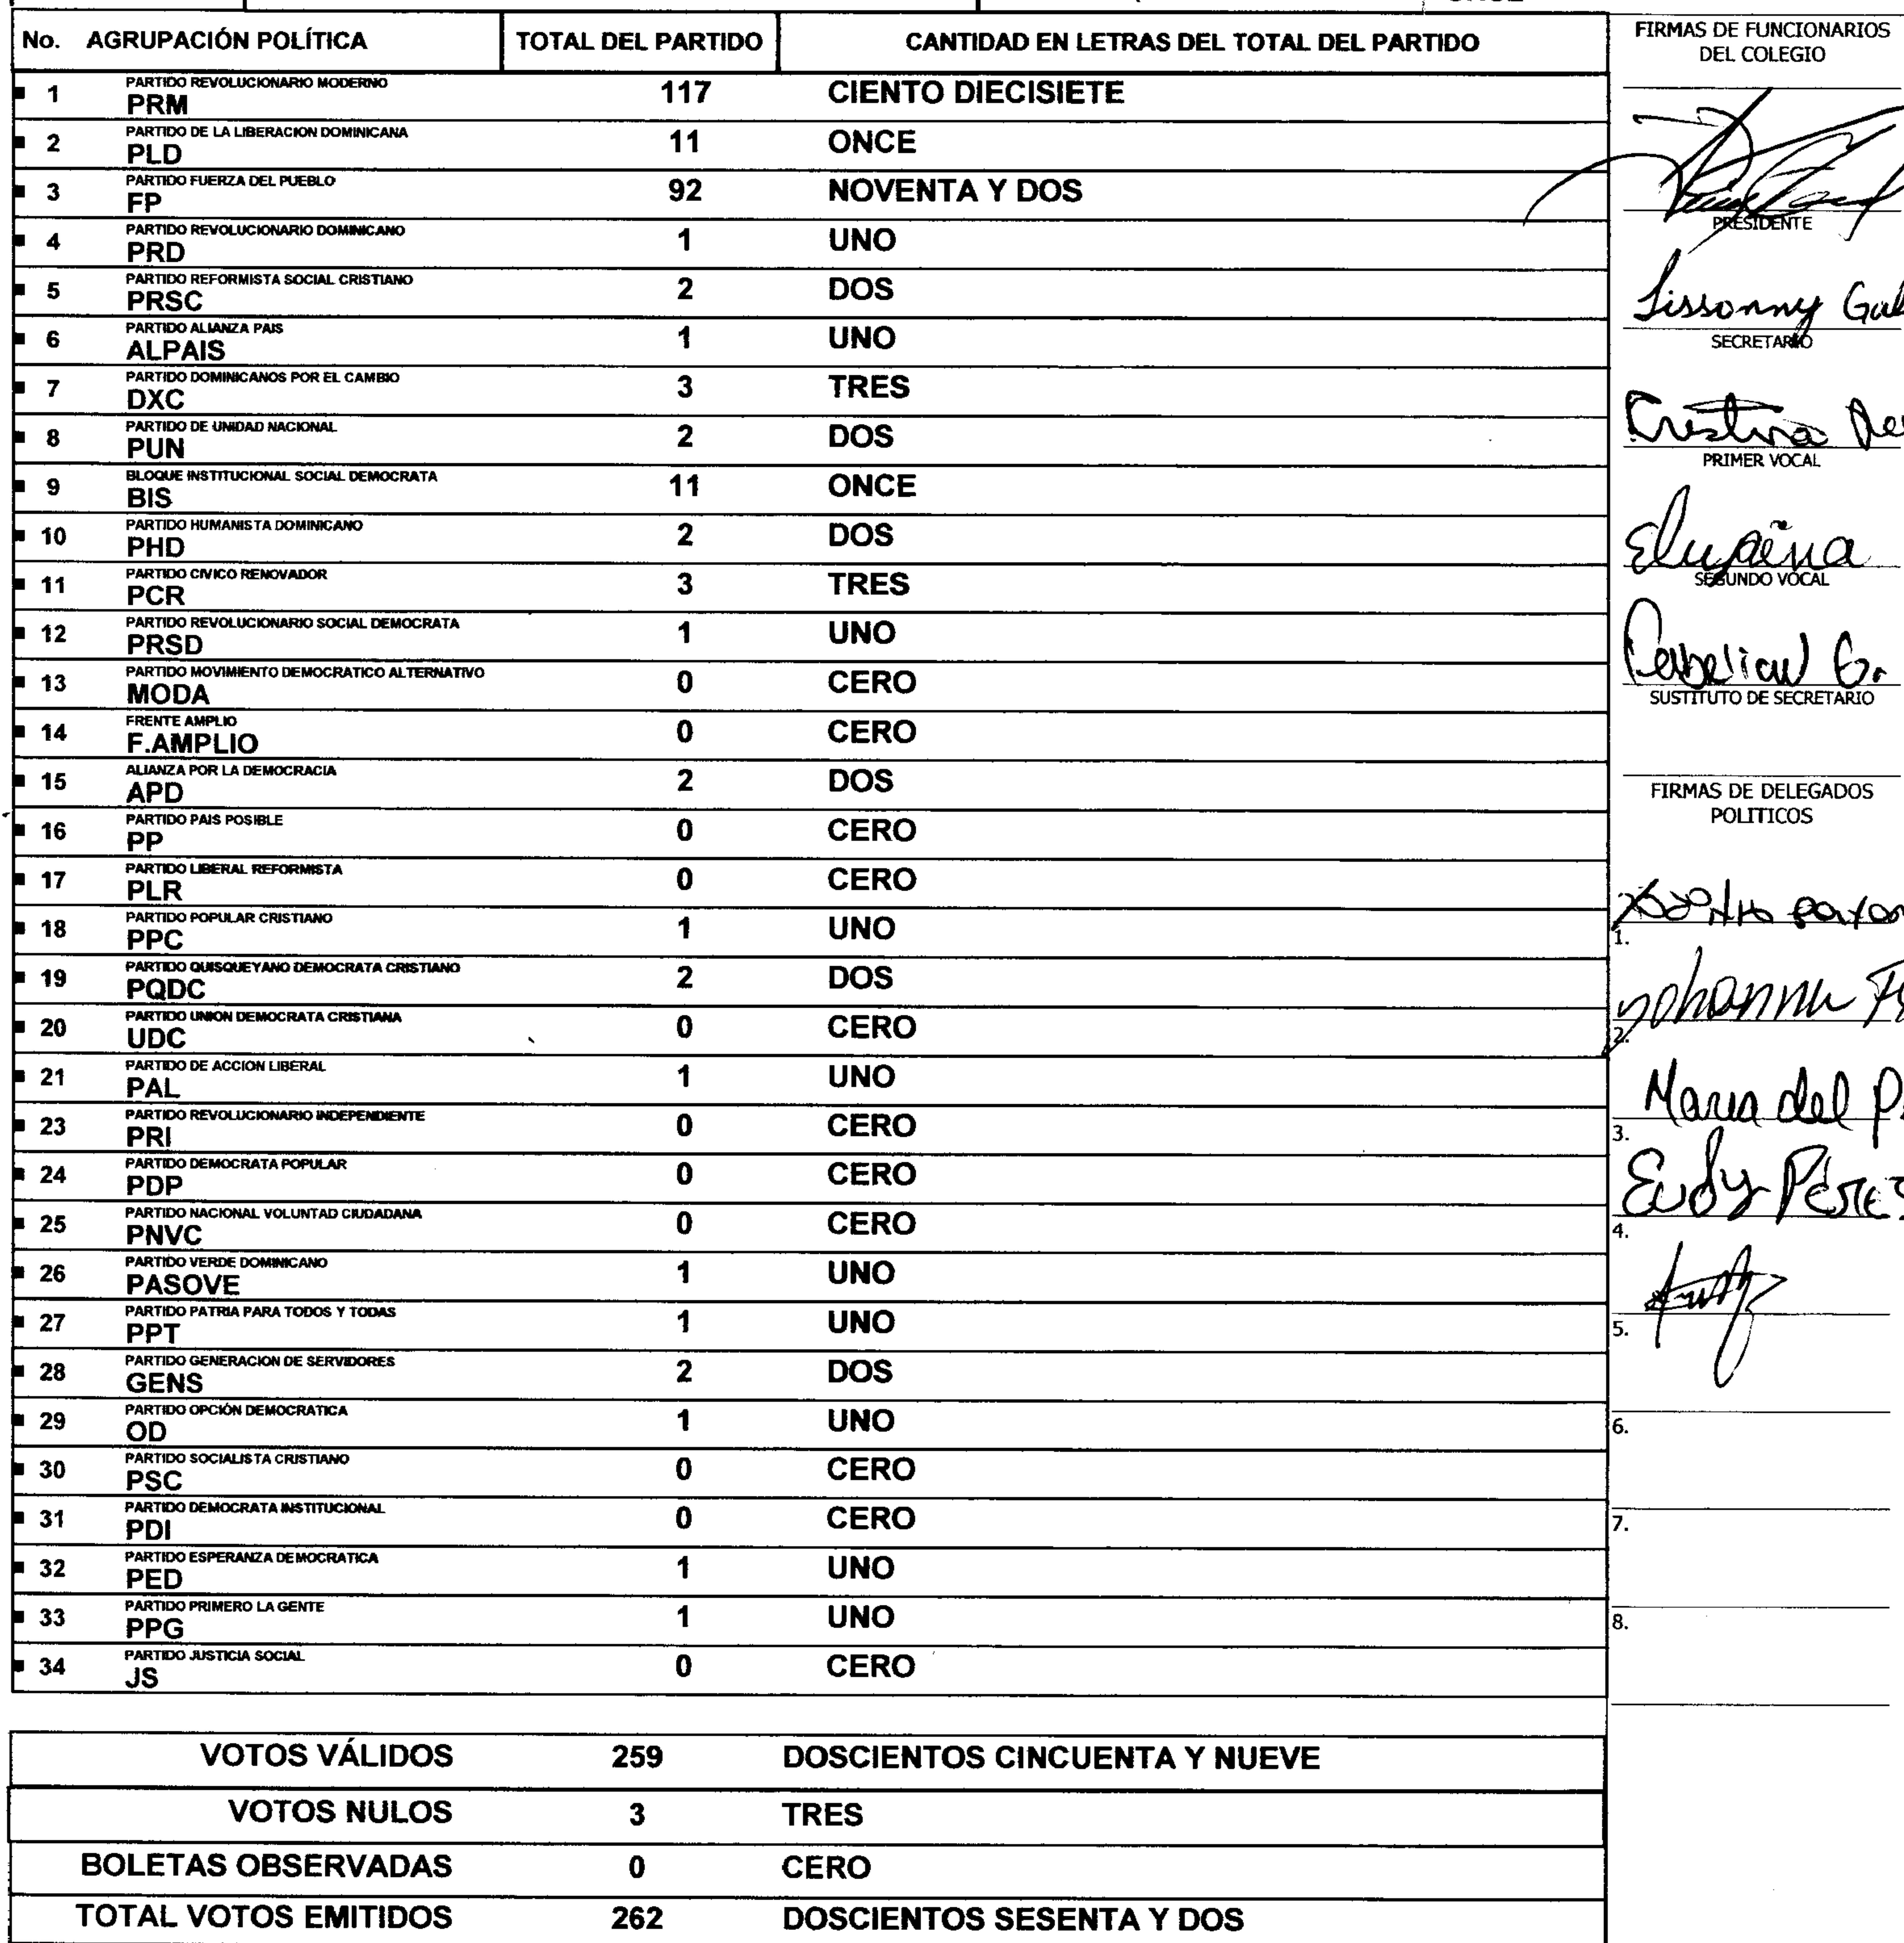 No. AGRUPACIÓN POLÍTICA TOTAL DEL PARTIDO CANTIDAD EN LETRAS DEL TOTAL DEL PARTIDO
PARTIDO REVOLUCIONARIO MODERNO
1 PRM 117 CIENTO DIECISIETE
PARTIDO DE LA LIBERACION DOMINICANA
2 PLD 11 ONCE
PARTIDO FUERZA DEL PUEBLO
3 FP 92 NOVENTA Y DOS
PARTIDO REVOLUCIONARIO DOMINICANO
4 PRD 1 UNO
PARTIDO REFORMISTA SOCIAL CRISTIANO
5 PRSC 2 DOS
PARTIDO ALIANZA PAIS
6 ALPAIS 1 UNO
PARTIDO DOMINICANOS POR EL CAMBIO
7 DXC 3 TRES
PARTIDO DE UNIDAD NACIONAL
8 PUN 2 DOS
BLOQUE INSTITUCIONAL SOCIAL DEMOCRATA
9 BIS 11 ONCE
PARTIDO HUMANISTA DOMINICANO
10 PHD 2 DOS
PARTIDO CIVICO RENOVADOR
11 PCR 3 TRES
PARTIDO REVOLUCIONARIO SOCIAL DEMOCRATA
12 PRSD 1 UNO
PARTIDO MOVIMIENTO DEMOCRATICO ALTERNATIVO
13 MODA 0 CERO
FRENTE AMPLIO
14 F.AMPLIO 0 CERO
ALIANZA POR LA DEMOCRACIA
15 APD 2 DOS
PARTIDO PAIS POSIBLE
16 PP 0 CERO
PARTIDO LIBERAL REFORMISTA
17 PLR 0 CERO
PARTIDO POPULAR CRISTIANO
18 PPC 1 UNO
PARTIDO QUISQUEYANO DEMOCRATA CRISTIANO
19 PQDC 2 DOS
PARTIDO UNION DEMOCRATA CRISTIANA
20 UDC 0 CERO
PARTIDO DE ACCION LIBERAL
21 PAL 1 UNO
PARTIDO REVOLUCIONARIO INDEPENDIENTE
23 PRI 0 CERO
PARTIDO DEMOCRATA POPULAR
24 PDP 0 CERO
PARTIDO NACIONAL VOLUNTAD CIUDADANA
25 PNVC 0 CERO
PARTIDO VERDE DOMINICANO
26 PASOVE 1 UNO
PARTIDO PATRIA PARA TODOS Y TODAS
27 PPT 1 UNO
PARTIDO GENERACION DE SERVIDORES
28 GENS 2 DOS
PARTIDO OPCIÓN DEMOCRATICA
29 OD 1 UNO
PARTIDO SOCIALISTA CRISTIANO
30 PSC 0 CERO
PARTIDO DEMOCRATA INSTITUCIONAL
31 PDI 0 CERO
PARTIDO ESPERANZA DEMOCRATICA
32 PED 1 UNO
PARTIDO PRIMERO LA GENTE
33 PPG 1 UNO
PARTIDO JUSTICIA SOCIAL
34 JS 0 CERO
VOTOS VÁLIDOS 259 DOSCIENTOS CINCUENTA Y NUEVE
VOTOS NULOS 3 TRES
BOLETAS OBSERVADAS 0 CERO
TOTAL VOTOS EMITIDOS 262 DOSCIENTOS SESENTA Y DOS
FIRMAS DE FUNCIONARIOS
DEL COLEGIO
PRESIDENTE
Lissonny
SECRETARIO
Cristina
PRIMER VOCAL
SEGUNDO VOCAL
SUSTITUTO DE SECRETARIO
FIRMAS DE DELEGADOS
POLITICOS
1.
2.
Maria del
3.
Eudy Pérez
4.
5.
6.
7.
8.